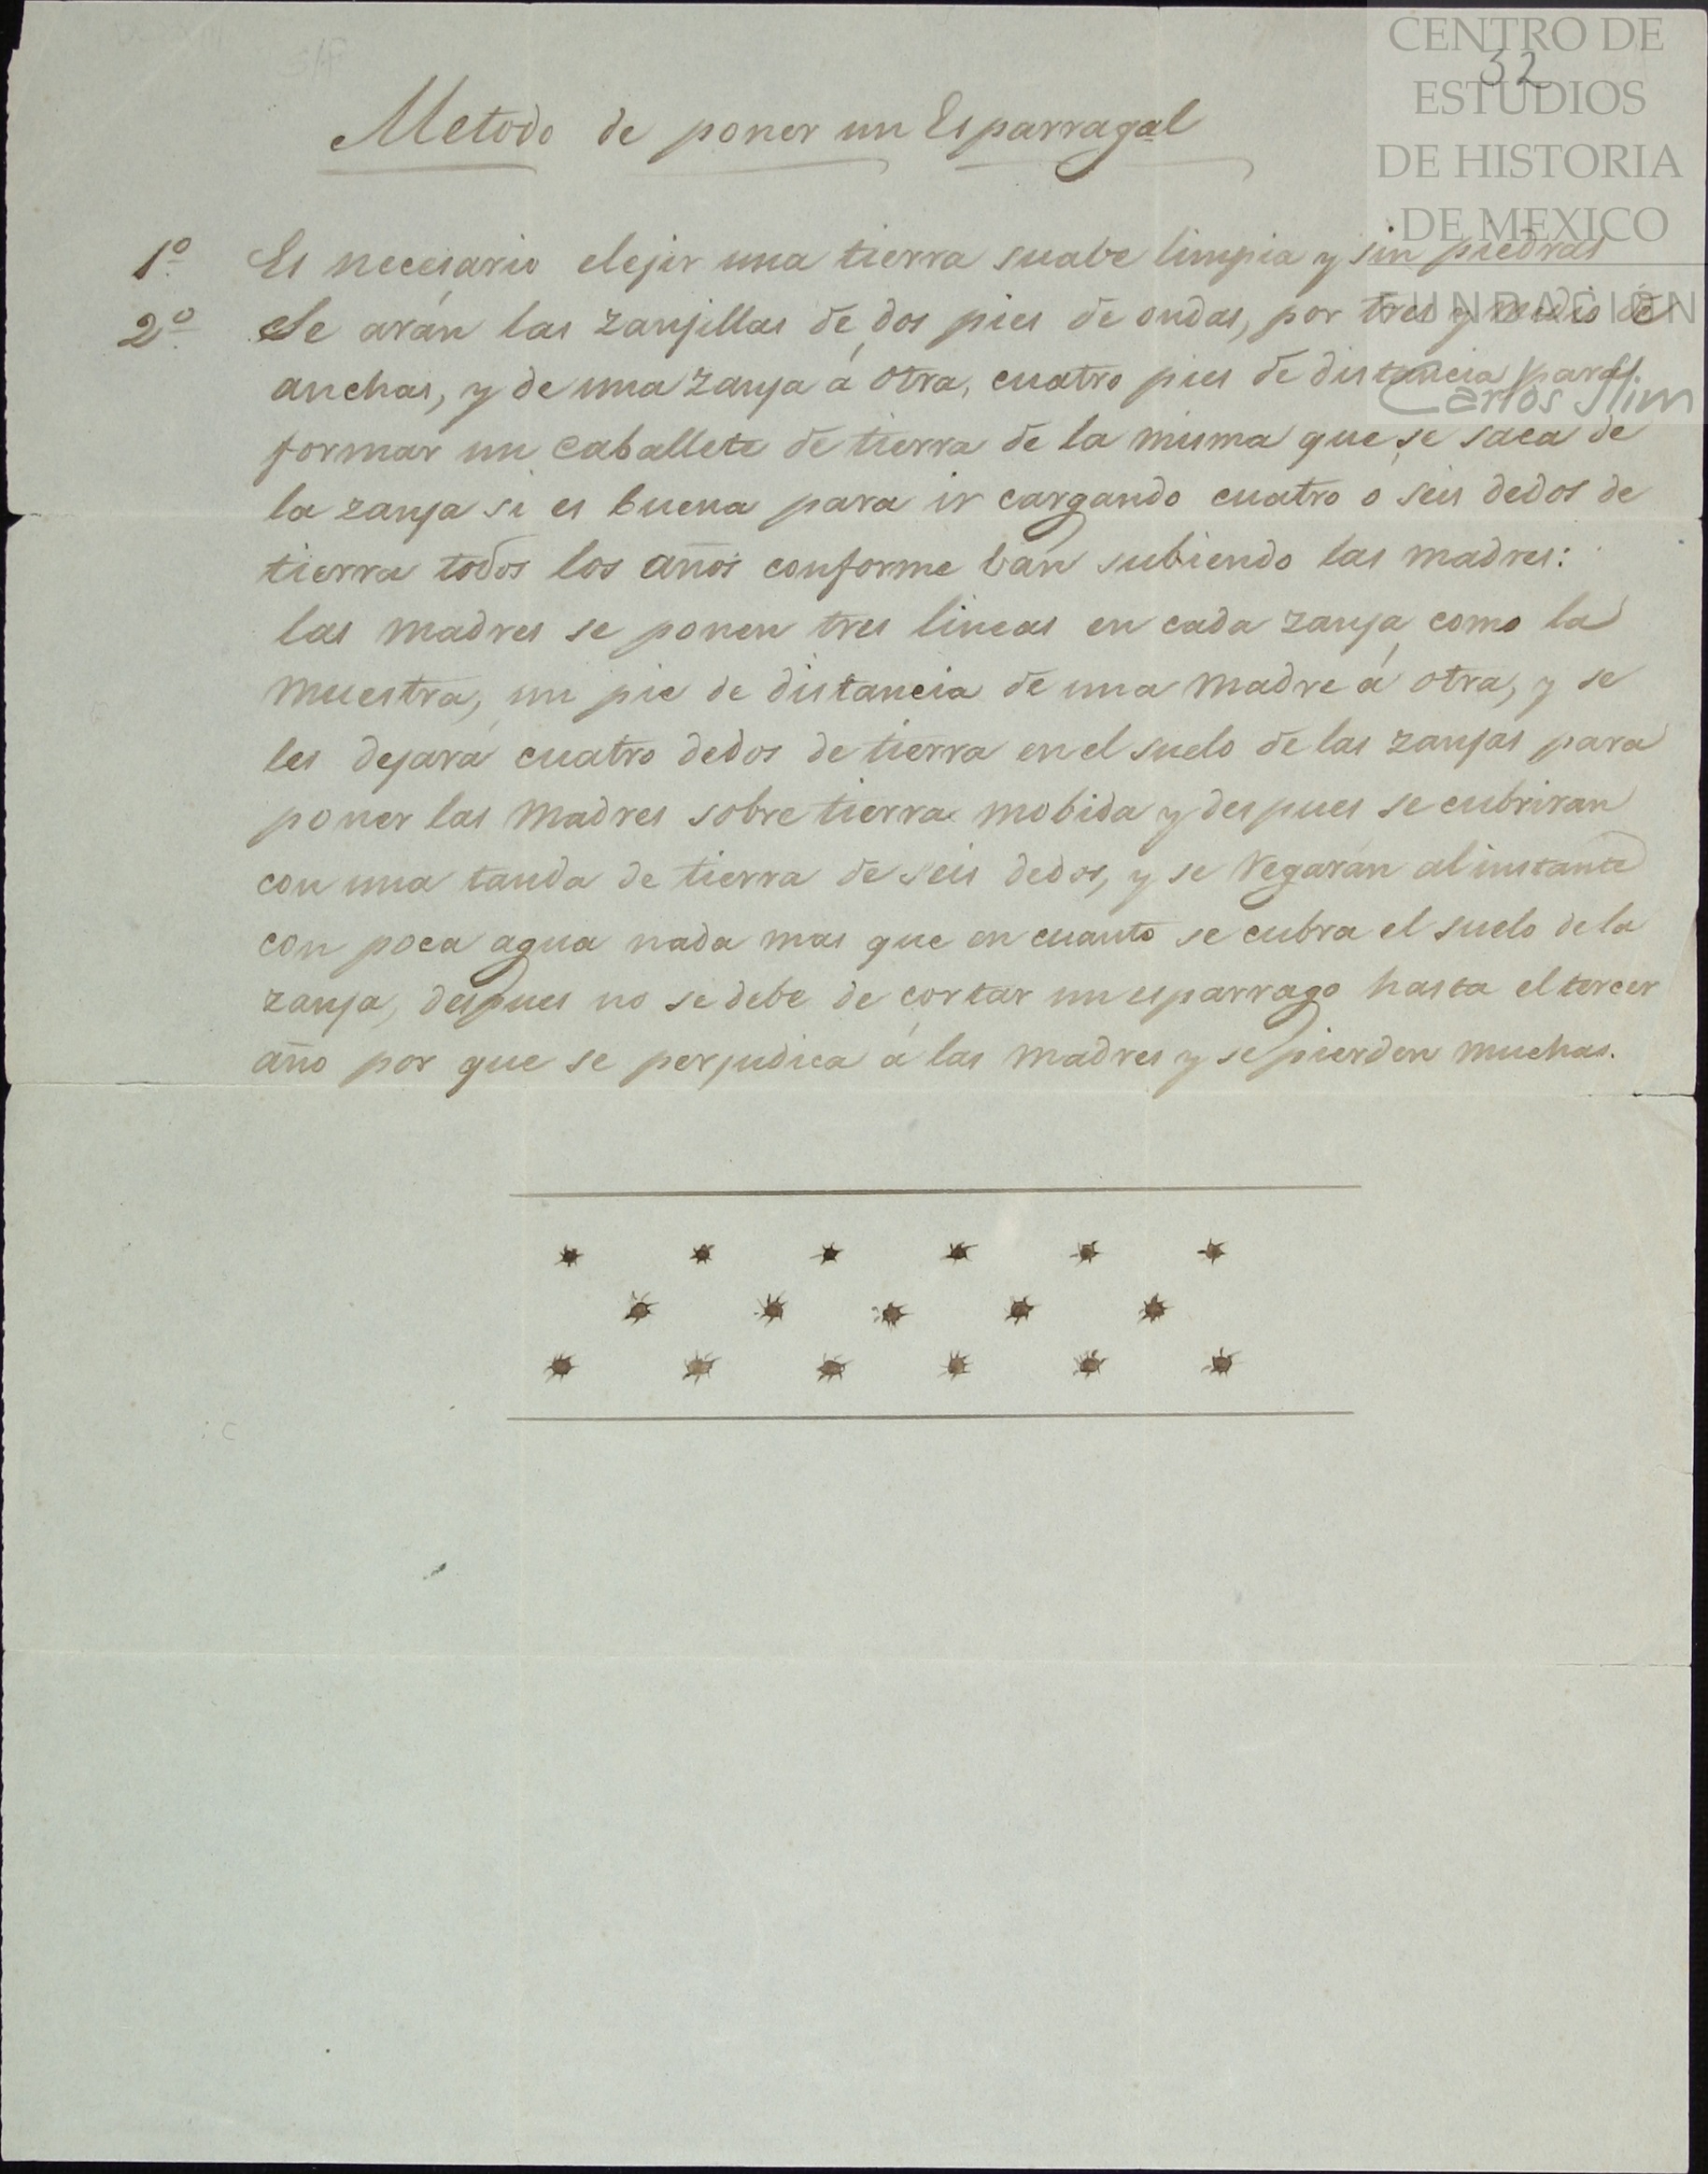 CENTRO DE
32
ESTUDIOS
DE HISTORIA
DE MEXICO
FUNDACIÓN
Carlos Slim
Metodo de poner un Esparragal
1º Es necesario elejir una tierra suabe limpia y sin piedras
2º Se arán las zanjillas de dos pies de ondas, por tres y medio de
anchas, y de una zanja á otra, cuatro pies de distancia para
formar un caballete de tierra de la misma que se saca de
la zanja si es buena para ir cargando cuatro o seis dedos de
tierra todos los años conforme ban subiendo las madres:
las madres se ponen tres lineas en cada zanja como la
muestra, un pie de distancia de una madre á otra, y se
les dejará cuatro dedos de tierra en el suelo de las zanjas para
poner las madres sobre tierra mobida y despues se cubriran
con una tanda de tierra de seis dedos, y se regarán al instante
con poca agua nada mas que en cuanto se cubra el suelo de la
zanja, despues no se debe de cortar un esparrago hasta el tercer
año por que se perjudica á las madres y se pierden muchas.